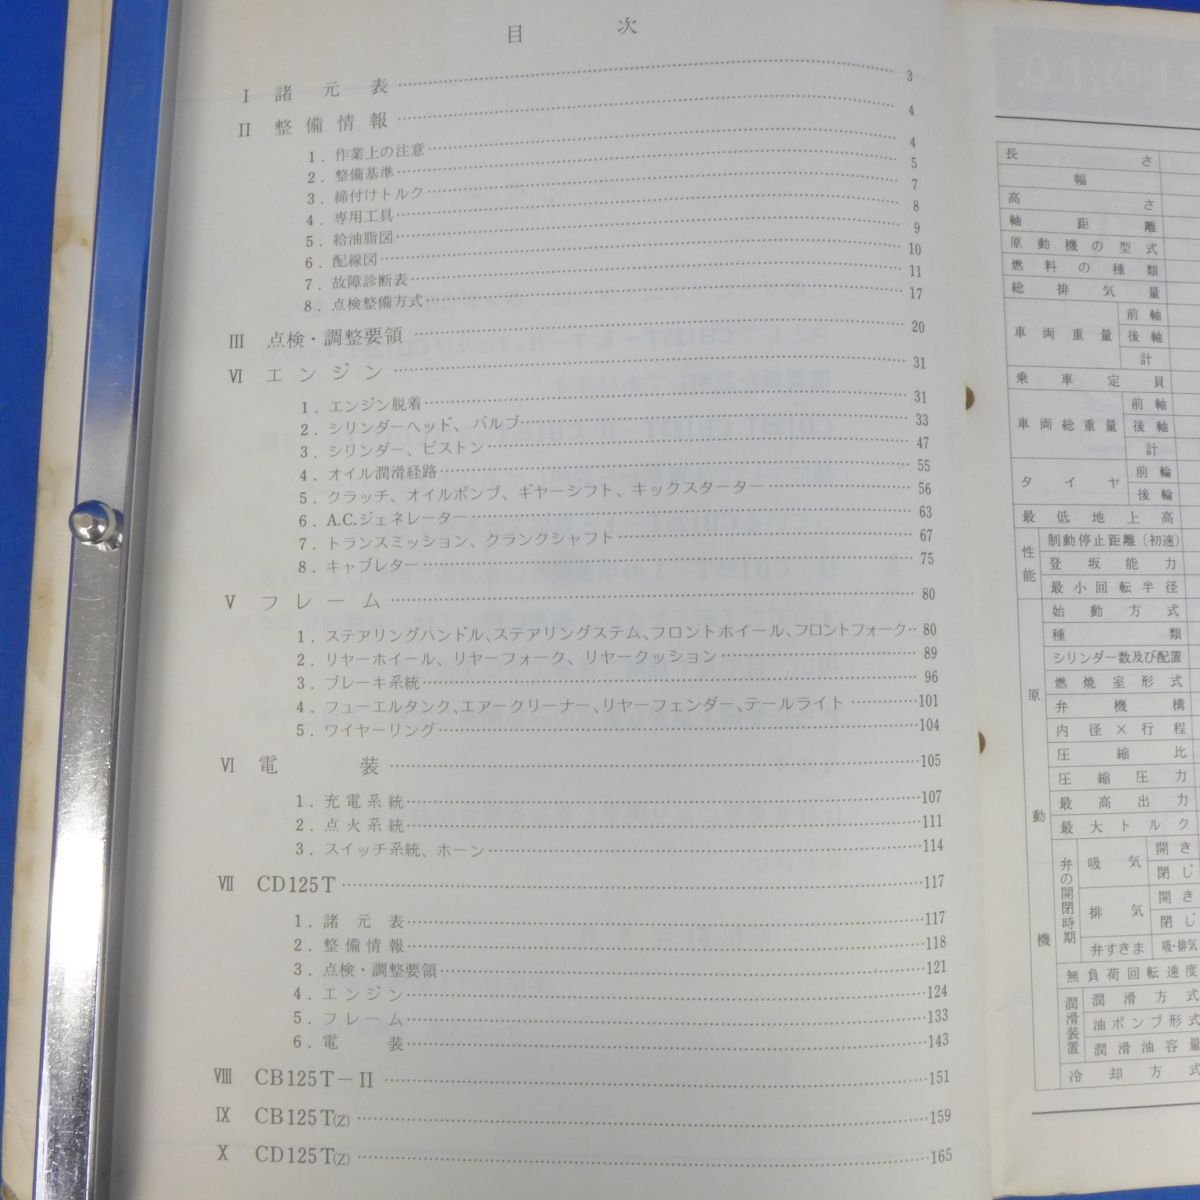 目 次
I 諸元表 3
II 整備情報 4
1. 作業上の注意 4
2. 整備基準 5
3. 締付けトルク 7
4. 専用工具 8
5. 給油脂図 9
6. 配線図 10
7. 故障診断表 11
8. 点検整備方式 17
III 点検・調整要領 20
VI エンジン 31
1. エンジン脱着 31
2. シリンダーヘッド、バルブ 33
3. シリンダー、ピストン 47
4. オイル潤滑経路 55
5. クラッチ、オイルポンプ、ギヤーシフト、キックスターター 56
6. A.C.ジェネレーター 63
7. トランスミッション、クランクシャフト 67
8. キャブレター 75
V フレーム 80
1. ステアリングハンドル、ステアリングステム、フロントホイール、フロントフォーク 80
2. リヤーホイール、リヤーフォーク、リヤークッション 89
3. ブレーキ系統 96
4. フューエルタンク、エアークリーナー、リヤーフェンダー、テールライト 101
5. ワイヤーリング 104
VI 電装 105
1. 充電系統 107
2. 点火系統 111
3. スイッチ系統、ホーン 114
VII CD125T 117
1. 諸元表 117
2. 整備情報 118
3. 点検・調整要領 121
4. エンジン 124
5. フレーム 133
6. 電装 143
VIII CB125T-II 151
IX CB125T(Z) 159
X CD125T(Z) 165
長さ
幅
高さ
軸距離
原動機の型式
燃料の種類
総排気量
車両重量
前軸
後軸
計
乗車定員
車両総重量
前軸
後軸
計
タイヤ
前輪
後輪
最低地上高
性能
制動停止距離(初速)
登坂能力
最小回転半径
原動機
始動方式
種類
シリンダー数及び配置
燃焼室形式
弁機構
内径×行程
圧縮比
圧縮圧力
最高出力
最大トルク
弁の開閉時期
吸気
開き
閉じ
排気
開き
閉じ
弁すきま
吸・排気
無負荷回転速度
潤滑装置
潤滑方式
油ポンプ形式
潤滑油容量
冷却方式